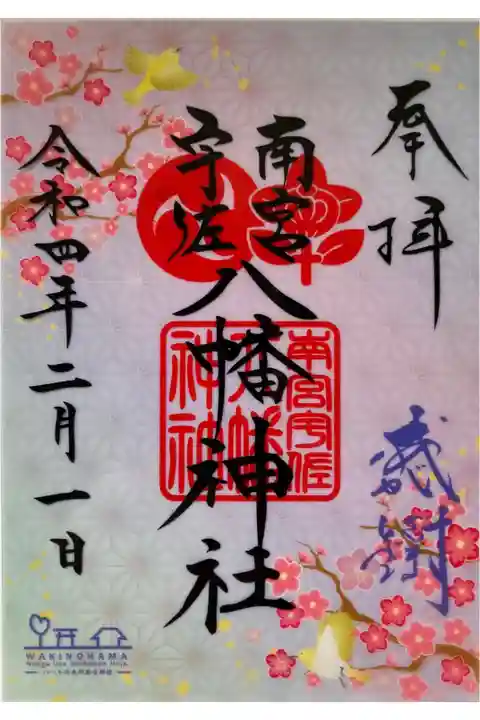 奉拝
感謝
南宮
宇佐
八幡神社
南宮宇佐
八幡
神社
令和四年二月一日
WAKINOHAMA
Nangu Usa Hachiman Jinja